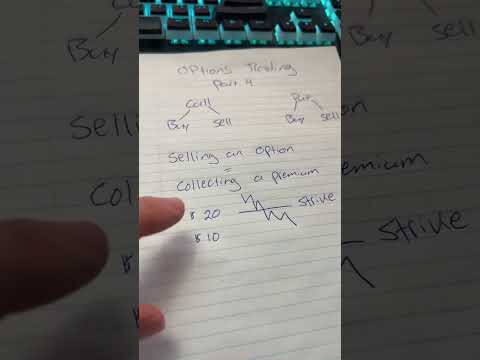 Options Trading
Part 4
Call
Buy
Sell
Put
Buy
Sell
Selling an option
=
Collecting a premium
$ 20
Strike
$ 10